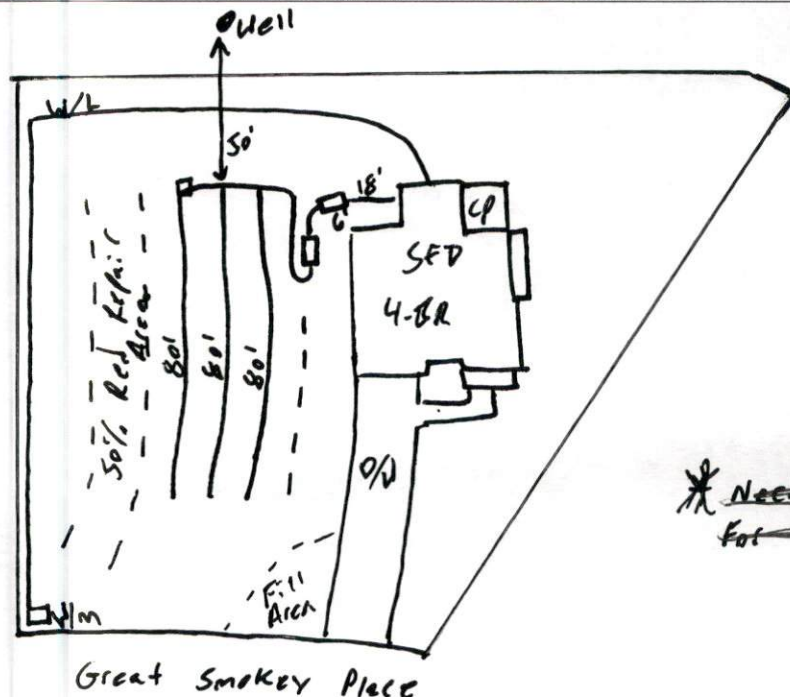 Well
W/L
50'
18'
6'
CP
SFD
4-BR
50% Red Repair
Area
80'
80'
80'
D/W
Fill
Area
W/M
Great Smokey Place